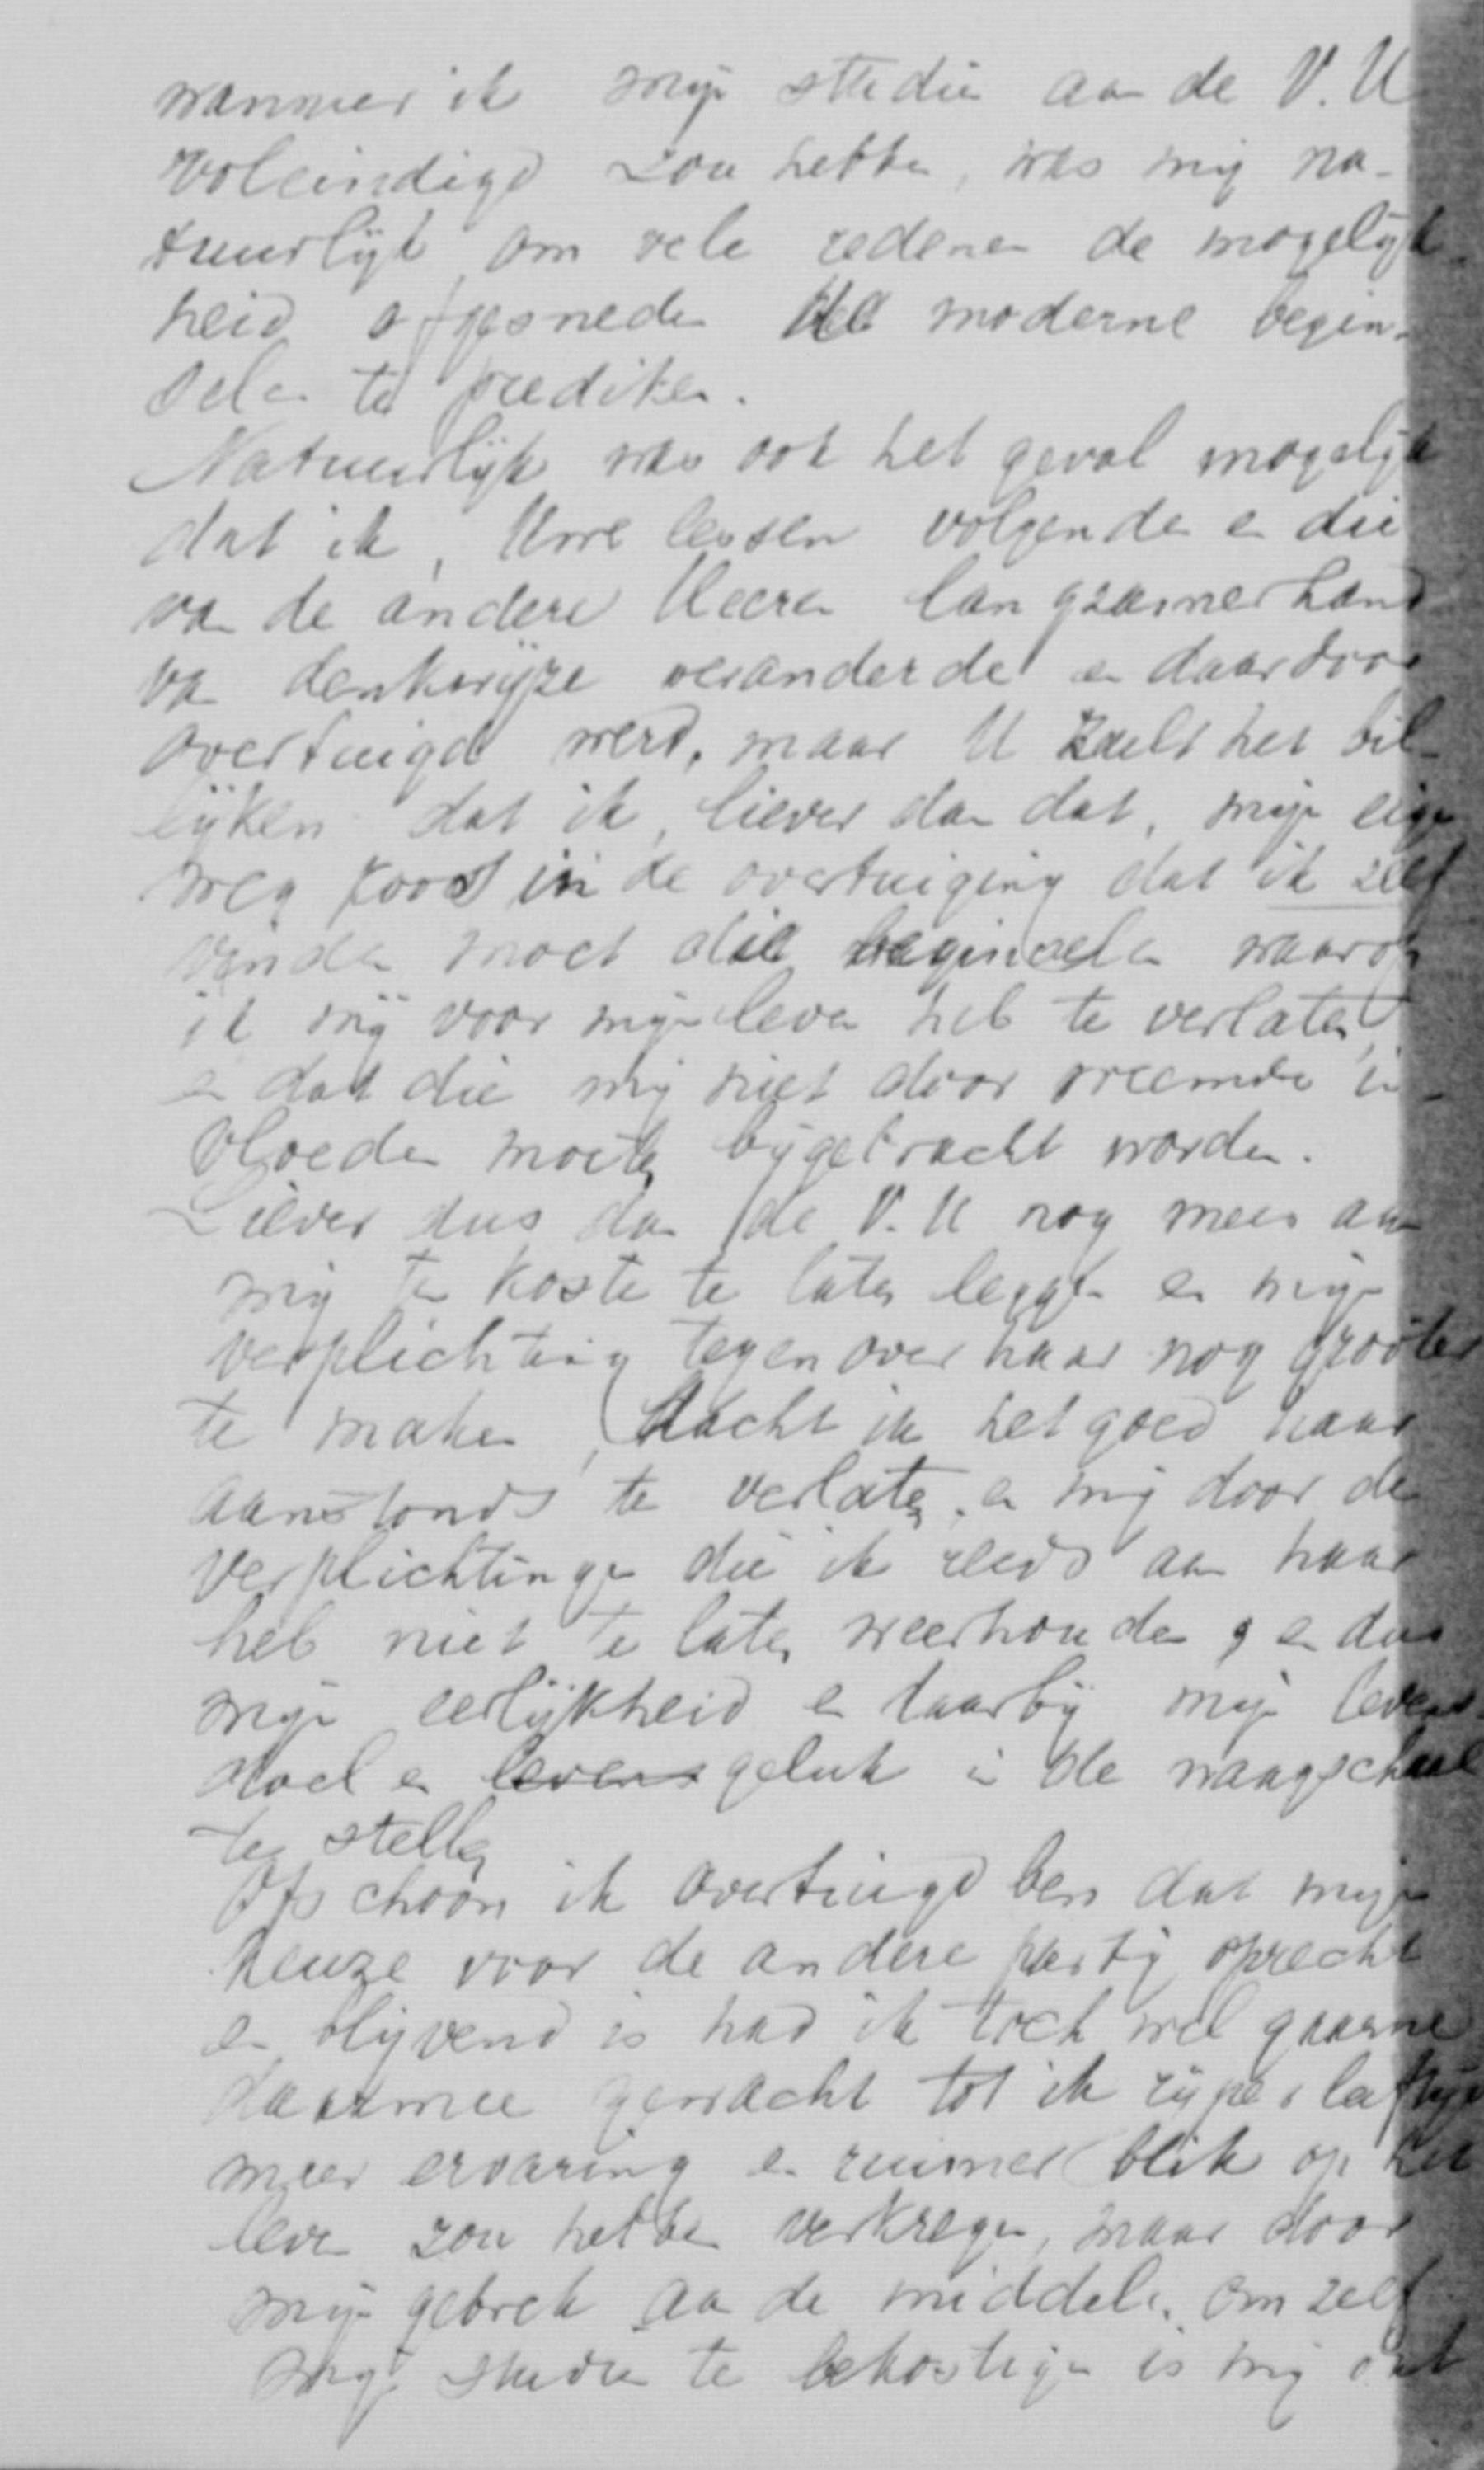 wanneer ik mijn studie aan de V.U
voleindigd zou hebben, was mij na-
tuurlijk om vele redenen de mogelijk-
heid afgesneden de moderne begin-
selen te prediken.
Natuurlijk was ook het geval mogelijk
dat ik, Uwe lessen volgende en die
van de andere Heeren langzamerhand
van denkwijze veranderde en daardoor
overtuigd werd, maar U zult het bil-
lijken dat ik, liever dan dat, mijn eigen
weg koos in de overtuiging dat ik zelf
vinden moet die beginselen waarop
ik mij voor mijn leven heb te verlaten,
en dat die mij niet door vreemde in-
vloeden moeten bijgebracht worden.
Liever dus dan de V.U nog meer aan
mij ten koste te laten leggen en mijn
verplichting tegenover haar nog grooter
te maken, dacht ik het goed haar
aanstonds te verlaten, en mij door de
verplichtingen die ik reeds aan haar
heb niet te laten weerhouden, en dus
mijn eerlijkheid en daarbij mijn levens-
doel en levensgeluk in de waagschaal
te stellen
Ofschoon ik overtuigd ben dat mijn
keuze voor de andere partij oprecht
en blijvend is had ik toch wel gaarne
daarmee gewacht tot ik rijper leeftijd
meer ervaring en ruimer blik op het
leven zou hebben verkregen, maar door
mijn gebrek aan de middelen om zelf
mijn studie te bekostigen is mij dat